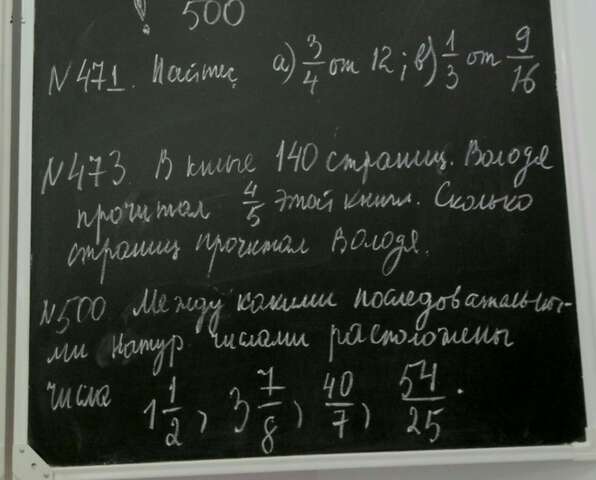 ! 500
№471. Найти, а) 3/4 от 12; в) 1/3 от 9/16
№473. В книге 140 страниц. Володя
прочитал 4/5 этой книги. Сколько
страниц прочитал Володя.
№500 Между какими последовательны-
ми натур числами расположены
числа 1 1/2, 3 7/8, 40/7, 54/25.